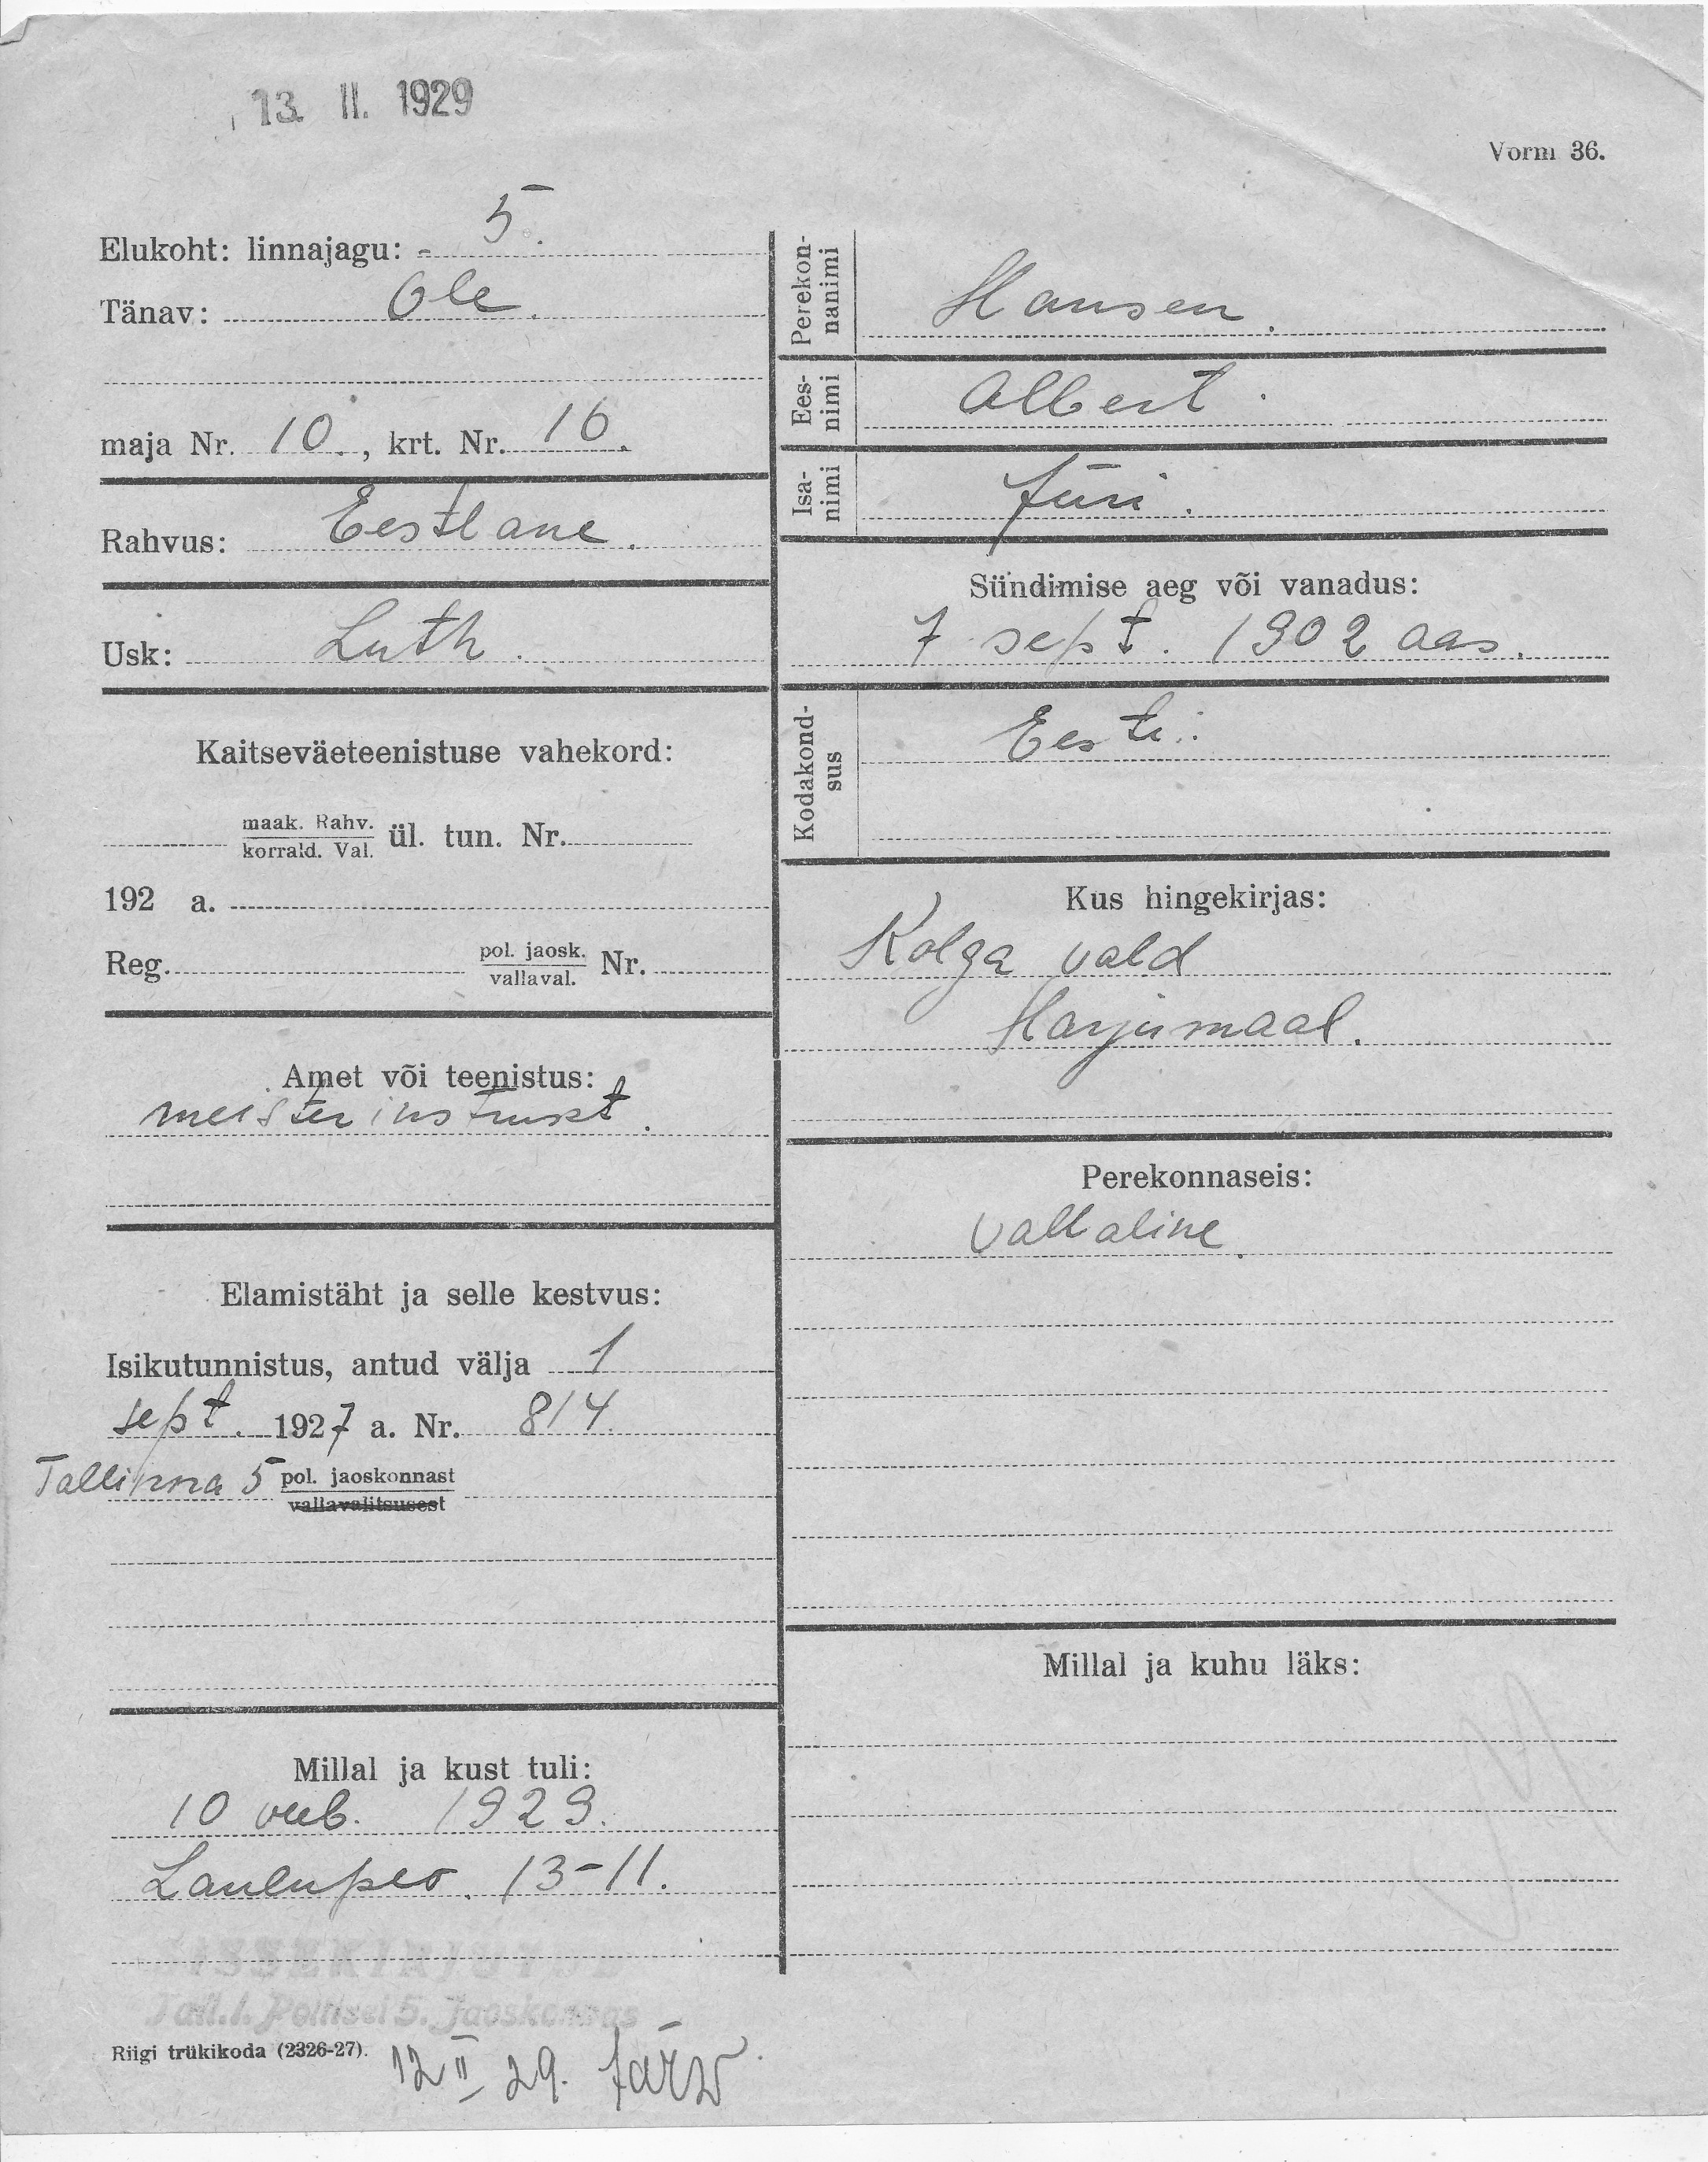 13. II. 1929
Vorm 36.
Elukoht: linnajagu: 5.
Tänav: Ole.
maja Nr. 10., krt. Nr. 16.
Rahvus: Eestlane.
Usk: Luth.
Kaitseväeteenistuse vahekord:
maak. Rahv.
korrald. Val. ül. tun. Nr.
192 a.
Reg. pol. jaosk. Nr.
vallaval.
Amet või teenistus:
meister instrukt.
Elamistäht ja selle kestvus:
Isikutunnistus, antud välja 1
sept. 1927 a. Nr. 814
Tallinna 5 pol. jaoskonnast
vallavalitsusest
Millal ja kust tuli:
10 veeb. 1929.
Laulupeo. 13-11.
Perekon-
nanimi
Hansen.
Ees-
nimi
Albert.
Isa-
nimi
Jüri.
Sündimise aeg või vanadus:
7 sept. 1902 aas.
Kodakond-
sus
Eesti.
Kus hingekirjas:
Kolga vald
Harjumaal.
Perekonnaseis:
vallaline.
Millal ja kuhu läks:
SISSEKIRJUTUD
Tall. l. Politsei 5. Jaoskonnas
Riigi trükikoda (2326-27).
12 II 29. Järw